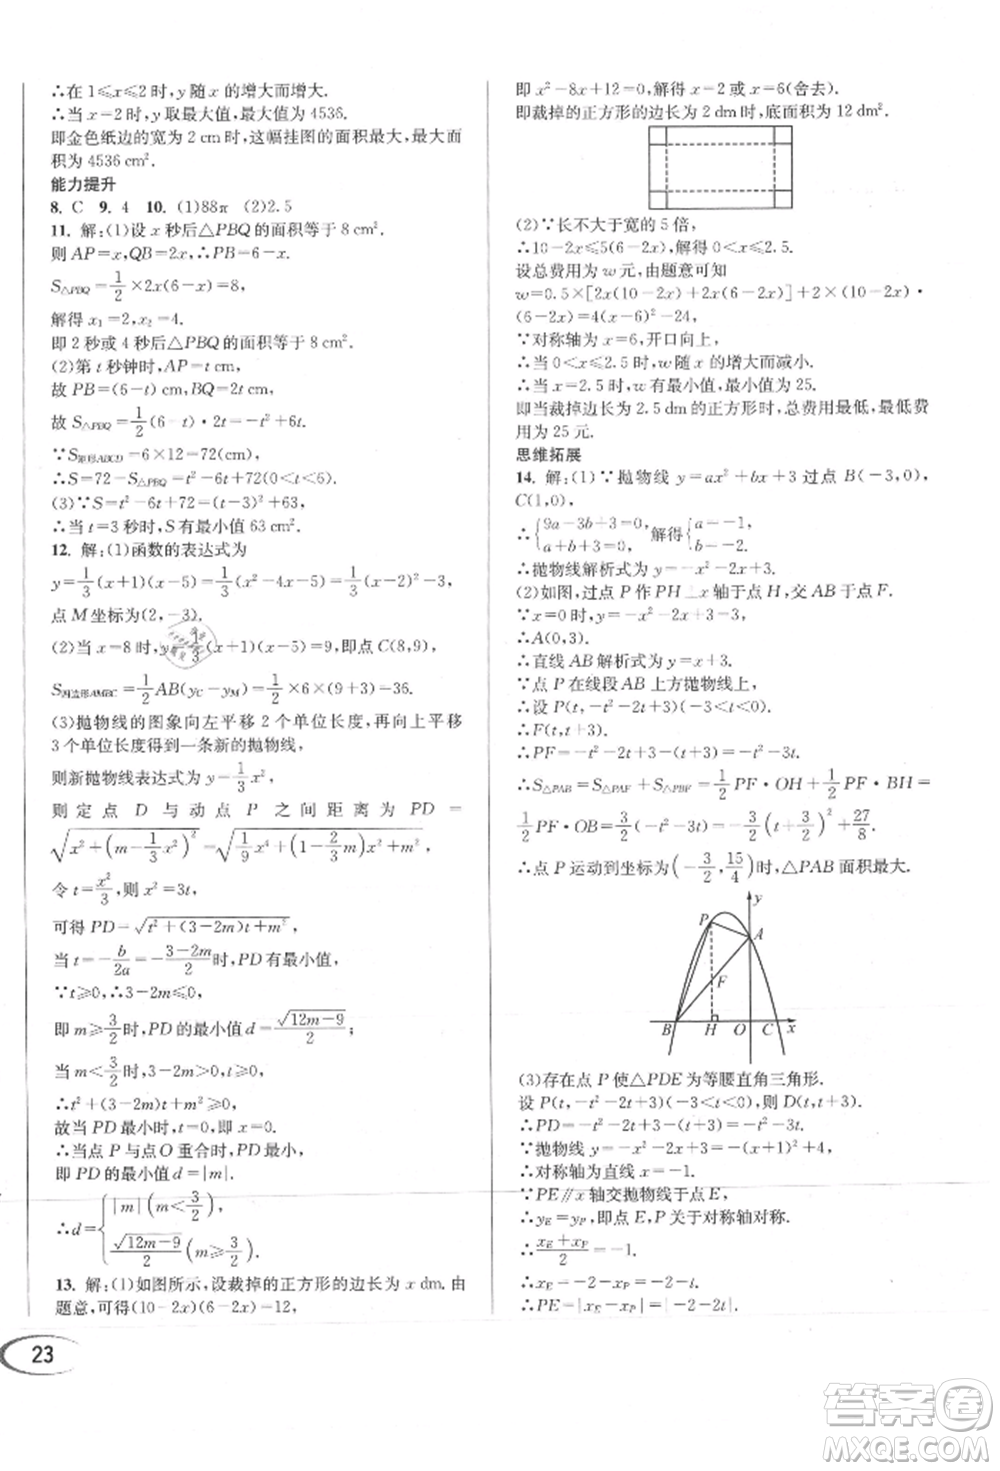 ∴在 1⩽x⩽2 时,y 随 x 的增大而增大.
∴当 x=2 时,y 取最大值,最大值为 4536.
即金色纸边的宽为 2 cm 时,这幅挂图的面积最大,最大面
积为 4536 cm².
能力提升
8. C 9. 4 10. (1)88π (2)2.5
11. 解:(1)设 x 秒后△PBQ 的面积等于 8 cm².
则 AP=x,QB=2x,∴PB=6-x.
S△PBQ=1/2×2x(6-x)=8,
解得 x₁=2,x₂=4.
即 2 秒或 4 秒后△PBQ 的面积等于 8 cm².
(2)第 t 秒钟时,AP=t cm,
故 PB=(6-t) cm,BQ=2t cm,
故 S△PBQ=1/2·(6-t)·2t=-t²+6t.
∵S矩形ABCD=6×12=72(cm²).
∴S=72-S△PBQ=t²-6t+72(0<t<6).
(3)∵S=t²-6t+72=(t-3)²+63,
∴当 t=3 秒时,S 有最小值 63 cm².
12. 解:(1)函数的表达式为
y=1/3(x+1)(x-5)=1/3(x²-4x-5)=1/3x²-4/3x-5/3,
点 M 坐标为(2,-3).
(2)当 x=8 时,y=1/3(x+1)(x-5)=9,即点 C(8,9).
S四边形AMBC=1/2AB(yC-yM)=1/2×6×(9+3)=36.
(3)抛物线的图象向左平移 2 个单位长度,再向上平移
3 个单位长度得到一条新的抛物线,
则新抛物线表达式为 y=1/3x².
则定点 D 与动点 P 之间距离为 PD=
√(x²+(m-1/3x²)²)=√(1/9x⁴+(1-2/3m)x²+m²).
令 t=x²/3,则 x²=3t,
可得 PD=√(t²+(3-2m)t+m²),
当 t=-b/2a=-(3-2m)/2时,PD 有最小值.
∵t⩾0,∴3-2m⩽0,
即 m⩾3/2时,PD 的最小值 d=√(12m-9)/2;
当 m<3/2时,3-2m>0,t⩾0,
∴t²+(3-2m)t⩾0,
故当 PD 最小时,t=0,即 x=0.
∴当点 P 与点 O 重合时,PD 最小.
即 PD 的最小值 d=|m|.
∴d={|m|(m<3/2),
√(12m-9)/2(m⩾3/2).
13. 解:(1)如图所示,设裁掉的正方形的边长为 x dm. 由
题意,可得(10-2x)(6-2x)=12,
23
即 x²-8x+12=0,解得 x=2 或 x=6(舍去).
即裁掉的正方形的边长为 2 dm 时,底面积为 12 dm².
(2)∵长不大于宽的 5 倍,
∴10-2x⩽5(6-2x),解得 0<x⩽2.5.
设总费用为 w 元,由题意可知
w=0.5×[2x(10-2x)+2x(6-2x)]+2×(10-2x)·
(6-2x)=4x²-48x+120=4(x-6)²-24,
∵对称轴为 x=6,开口向上,
∴当 0<x⩽2.5 时,w 随 x 的增大而减小.
∴当 x=2.5 时,w 有最小值,最小值为 25.
即当裁掉边长为 2.5 dm 的正方形时,总费用最低,最低费
用为 25 元.
思维拓展
14. 解:(1)∵抛物线 y=ax²+bx+3 过点 B(-3,0),
C(1,0),
∴{9a-3b+3=0, a+b+3=0,解得{a=-1, b=-2.
∴抛物线解析式为 y=-x²-2x+3.
(2)如图,过点 P 作 PH⊥x 轴于点 H,交 AB 于点 F.
∵x=0 时,y=-x²-2x+3=3,
∴A(0,3).
∴直线 AB 解析式为 y=x+3.
∵点 P 在线段 AB 上方抛物线上,
∴设 P(t,-t²-2t+3)(-3<t<0).
∴F(t,t+3).
∴PF=-t²-2t+3-(t+3)=-t²-3t.
∴S△PAB=S△PAF+S△PBF=1/2PF·OH+1/2PF·BH=
1/2PF·OB=3/2(-t²-3t)=-3/2(t+3/2)²+27/8.
∴点 P 运动到坐标为(-3/2,15/4)时,△PAB 面积最大.
y
P
A
F
B H O C x
(3)存在点 P 使△PDE 为等腰直角三角形.
设 P(t,-t²-2t+3)(-3<t<0),则 D(t,t+3).
∴PD=-t²-2t+3-(t+3)=-t²-3t.
∵抛物线 y=-x²-2x+3=-(x+1)²+4,
∴对称轴为直线 x=-1.
∵PE∥x 轴交抛物线于点 E,
∴yE=yP,即点 E,P 关于对称轴对称.
∴(xE+xP)/2=-1.
∴xE=-2-xP=-2-t.
∴PE=|xE-xP|=|-2-2t|.
答案圈
MXQE.COM